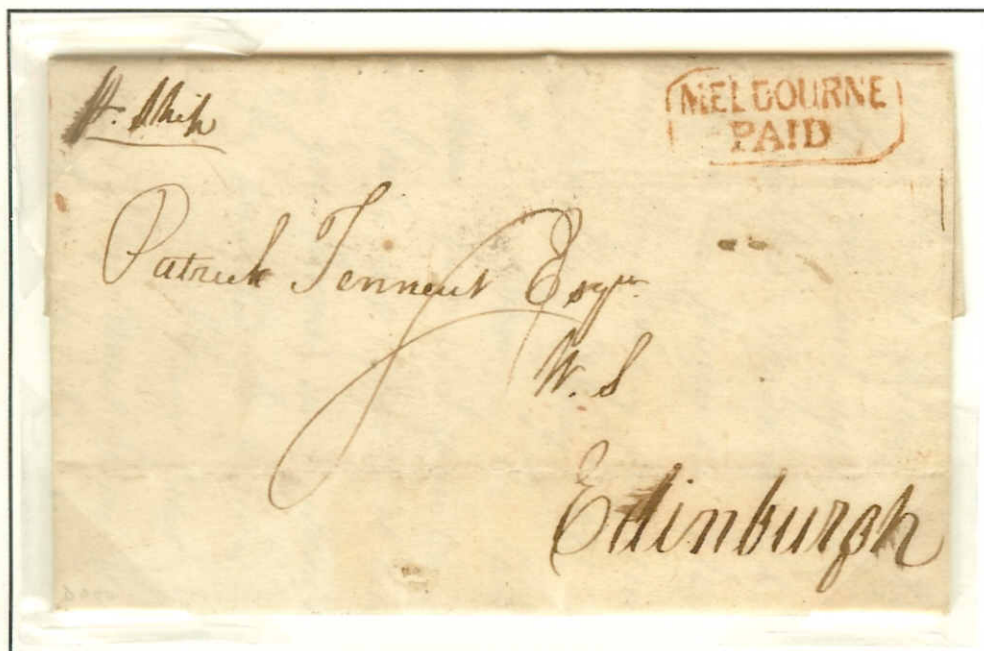 P. Ship
MELBOURNE
PAID
Patrick Tennent Esqr.
W. S
Edinburgh